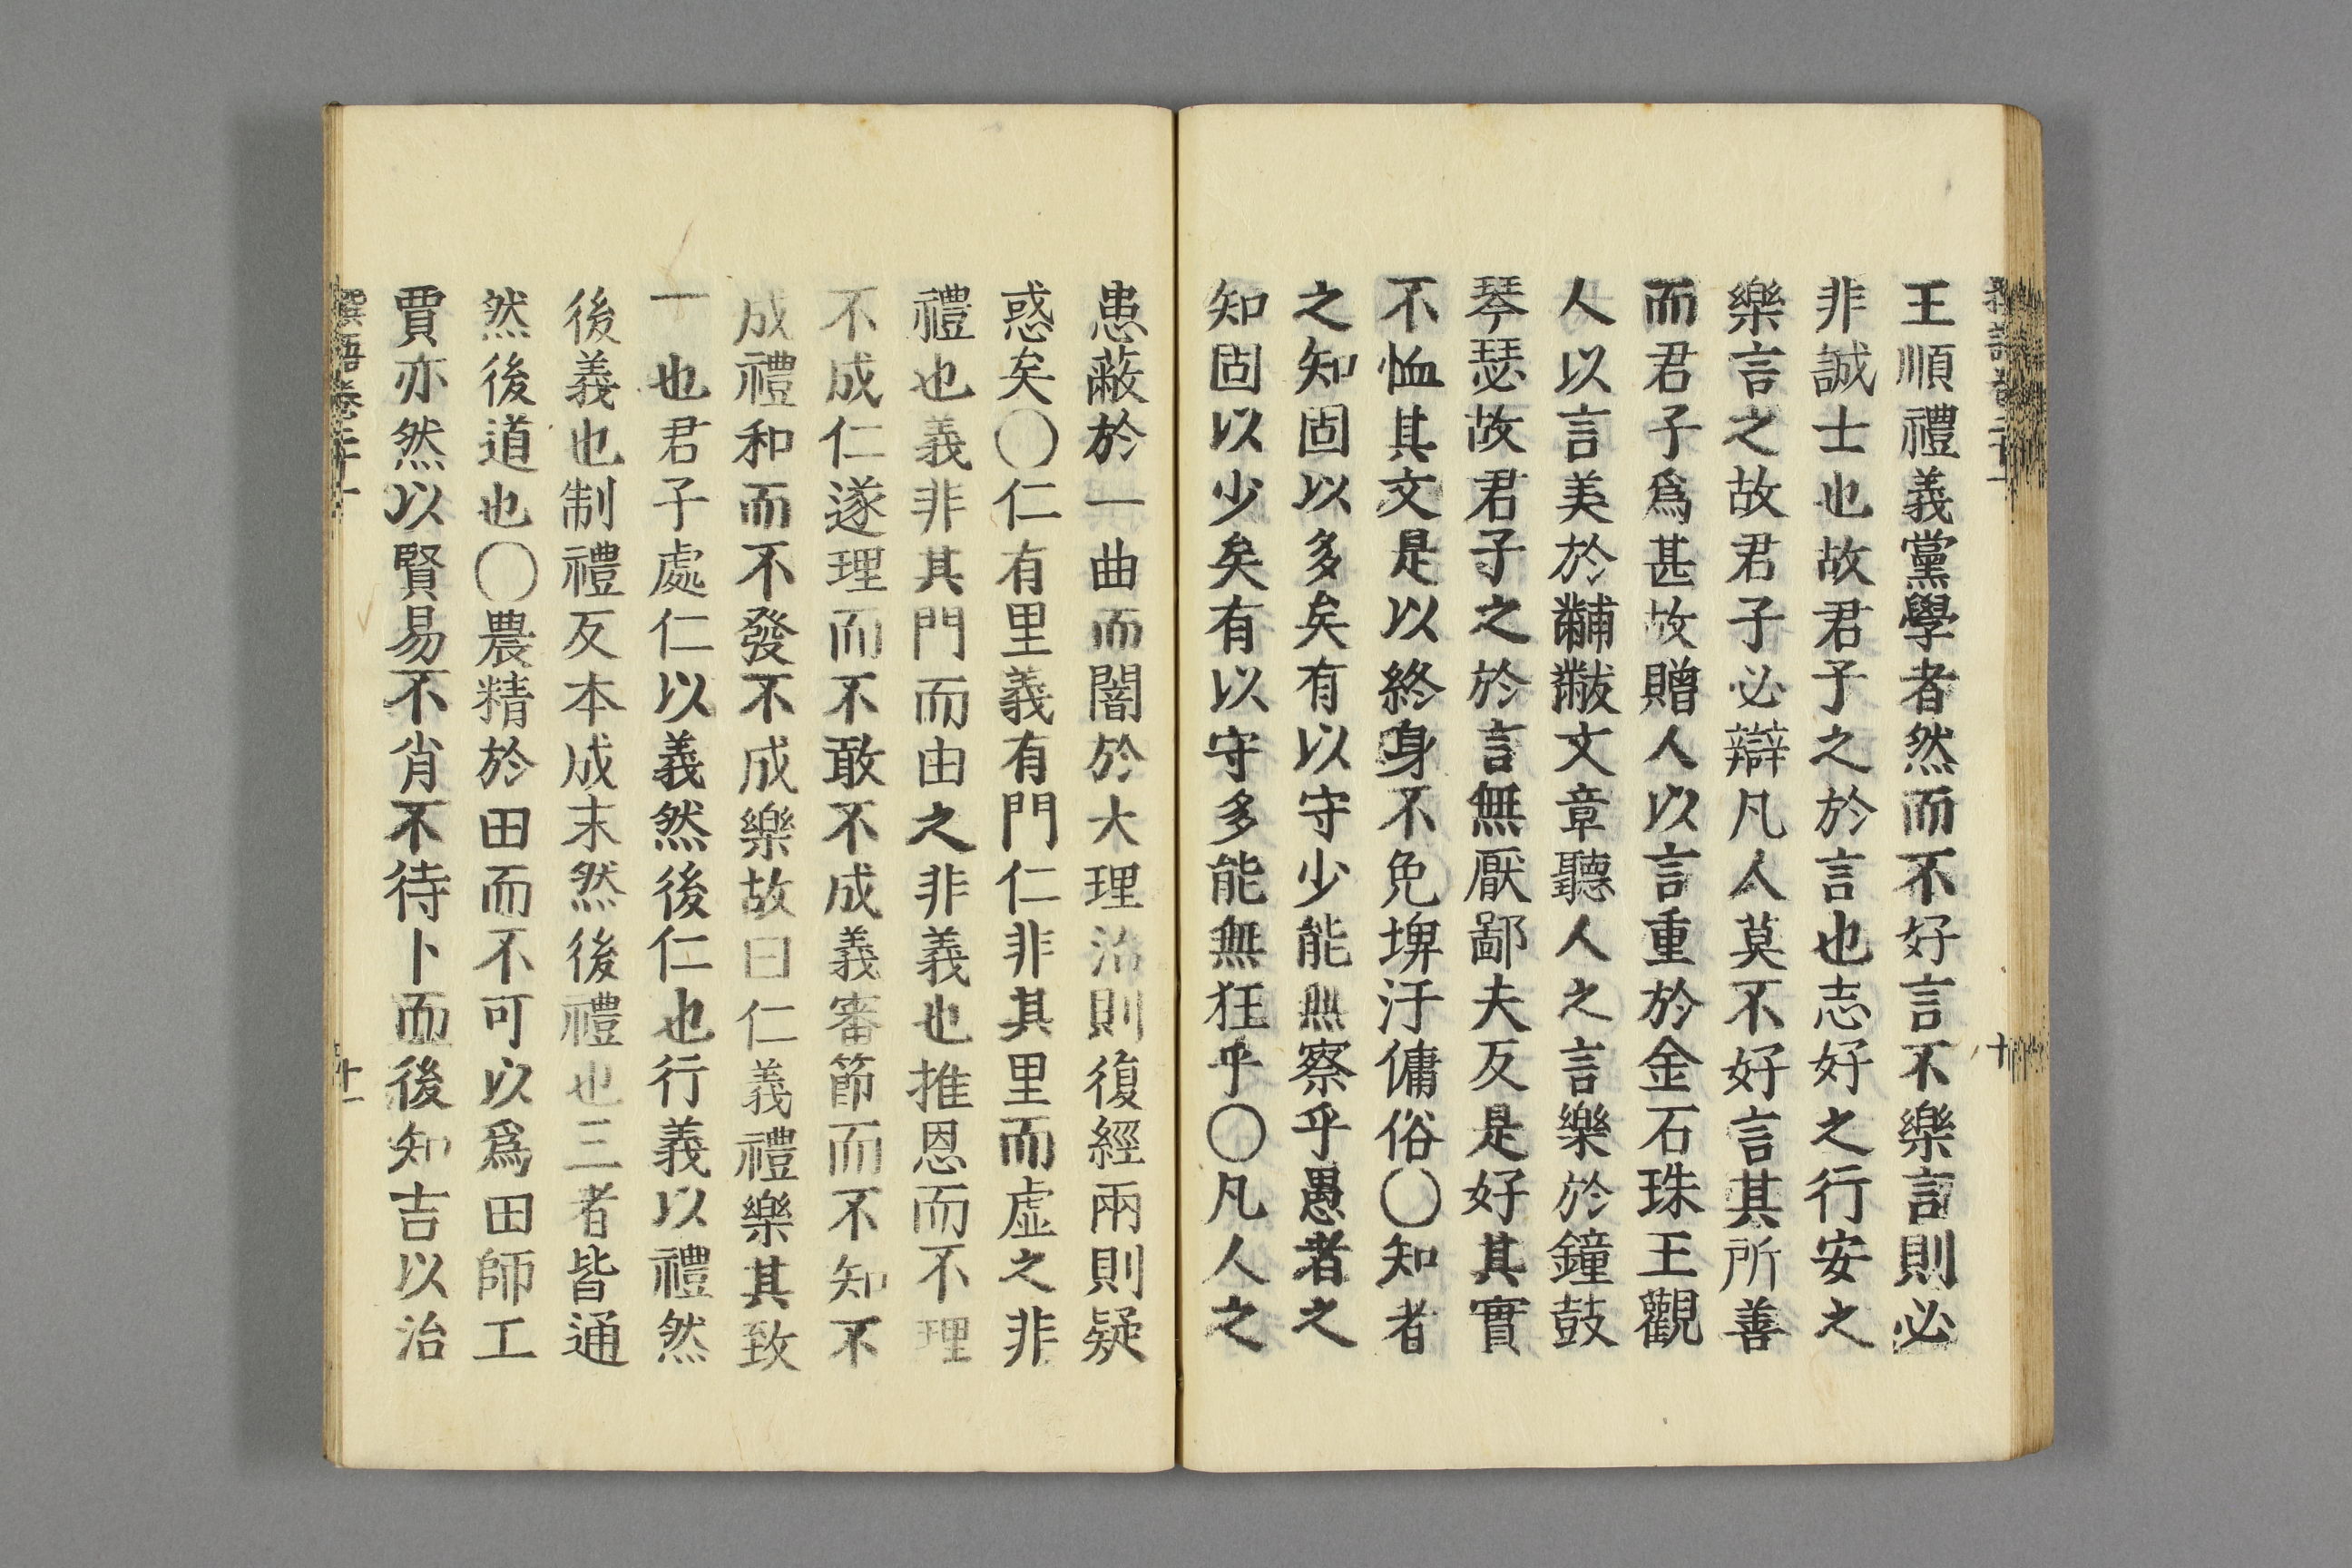 王順禮義黨學者然而不好言不樂言則必
非誠士也故君子之於言也志好之行安之
樂言之故君子必辯凡人莫不好言其所善
而君子爲甚故贈人以言重於金石珠王觀
人以言美於黼黻文章聽人之言樂於鐘鼓
琴瑟故君子之於言無厭鄙夫反是好其實
不恤其文是以終身不免埤汙傭俗〇知者
之知固以多矣有以守少能無察乎愚者之
知固以少矣有以守多能無狂乎〇凡人之
患蔽於一曲而闇於大理治則復經兩則疑
惑矣〇仁有里義有門仁非其里而虛之非
禮也義非其門而由之非義也推恩而不理
不成仁遂理而不敢不成義審節而不知不
成禮和而不發不成樂故曰仁義禮樂其致
一也君子處仁以義然後仁也行義以禮然
後義也制禮反本成末然後禮也三者皆通
然後道也〇農精於田而不可以爲田師工
賈亦然以賢易不肖不待卜而後知吉以治
語卷二十一
十一